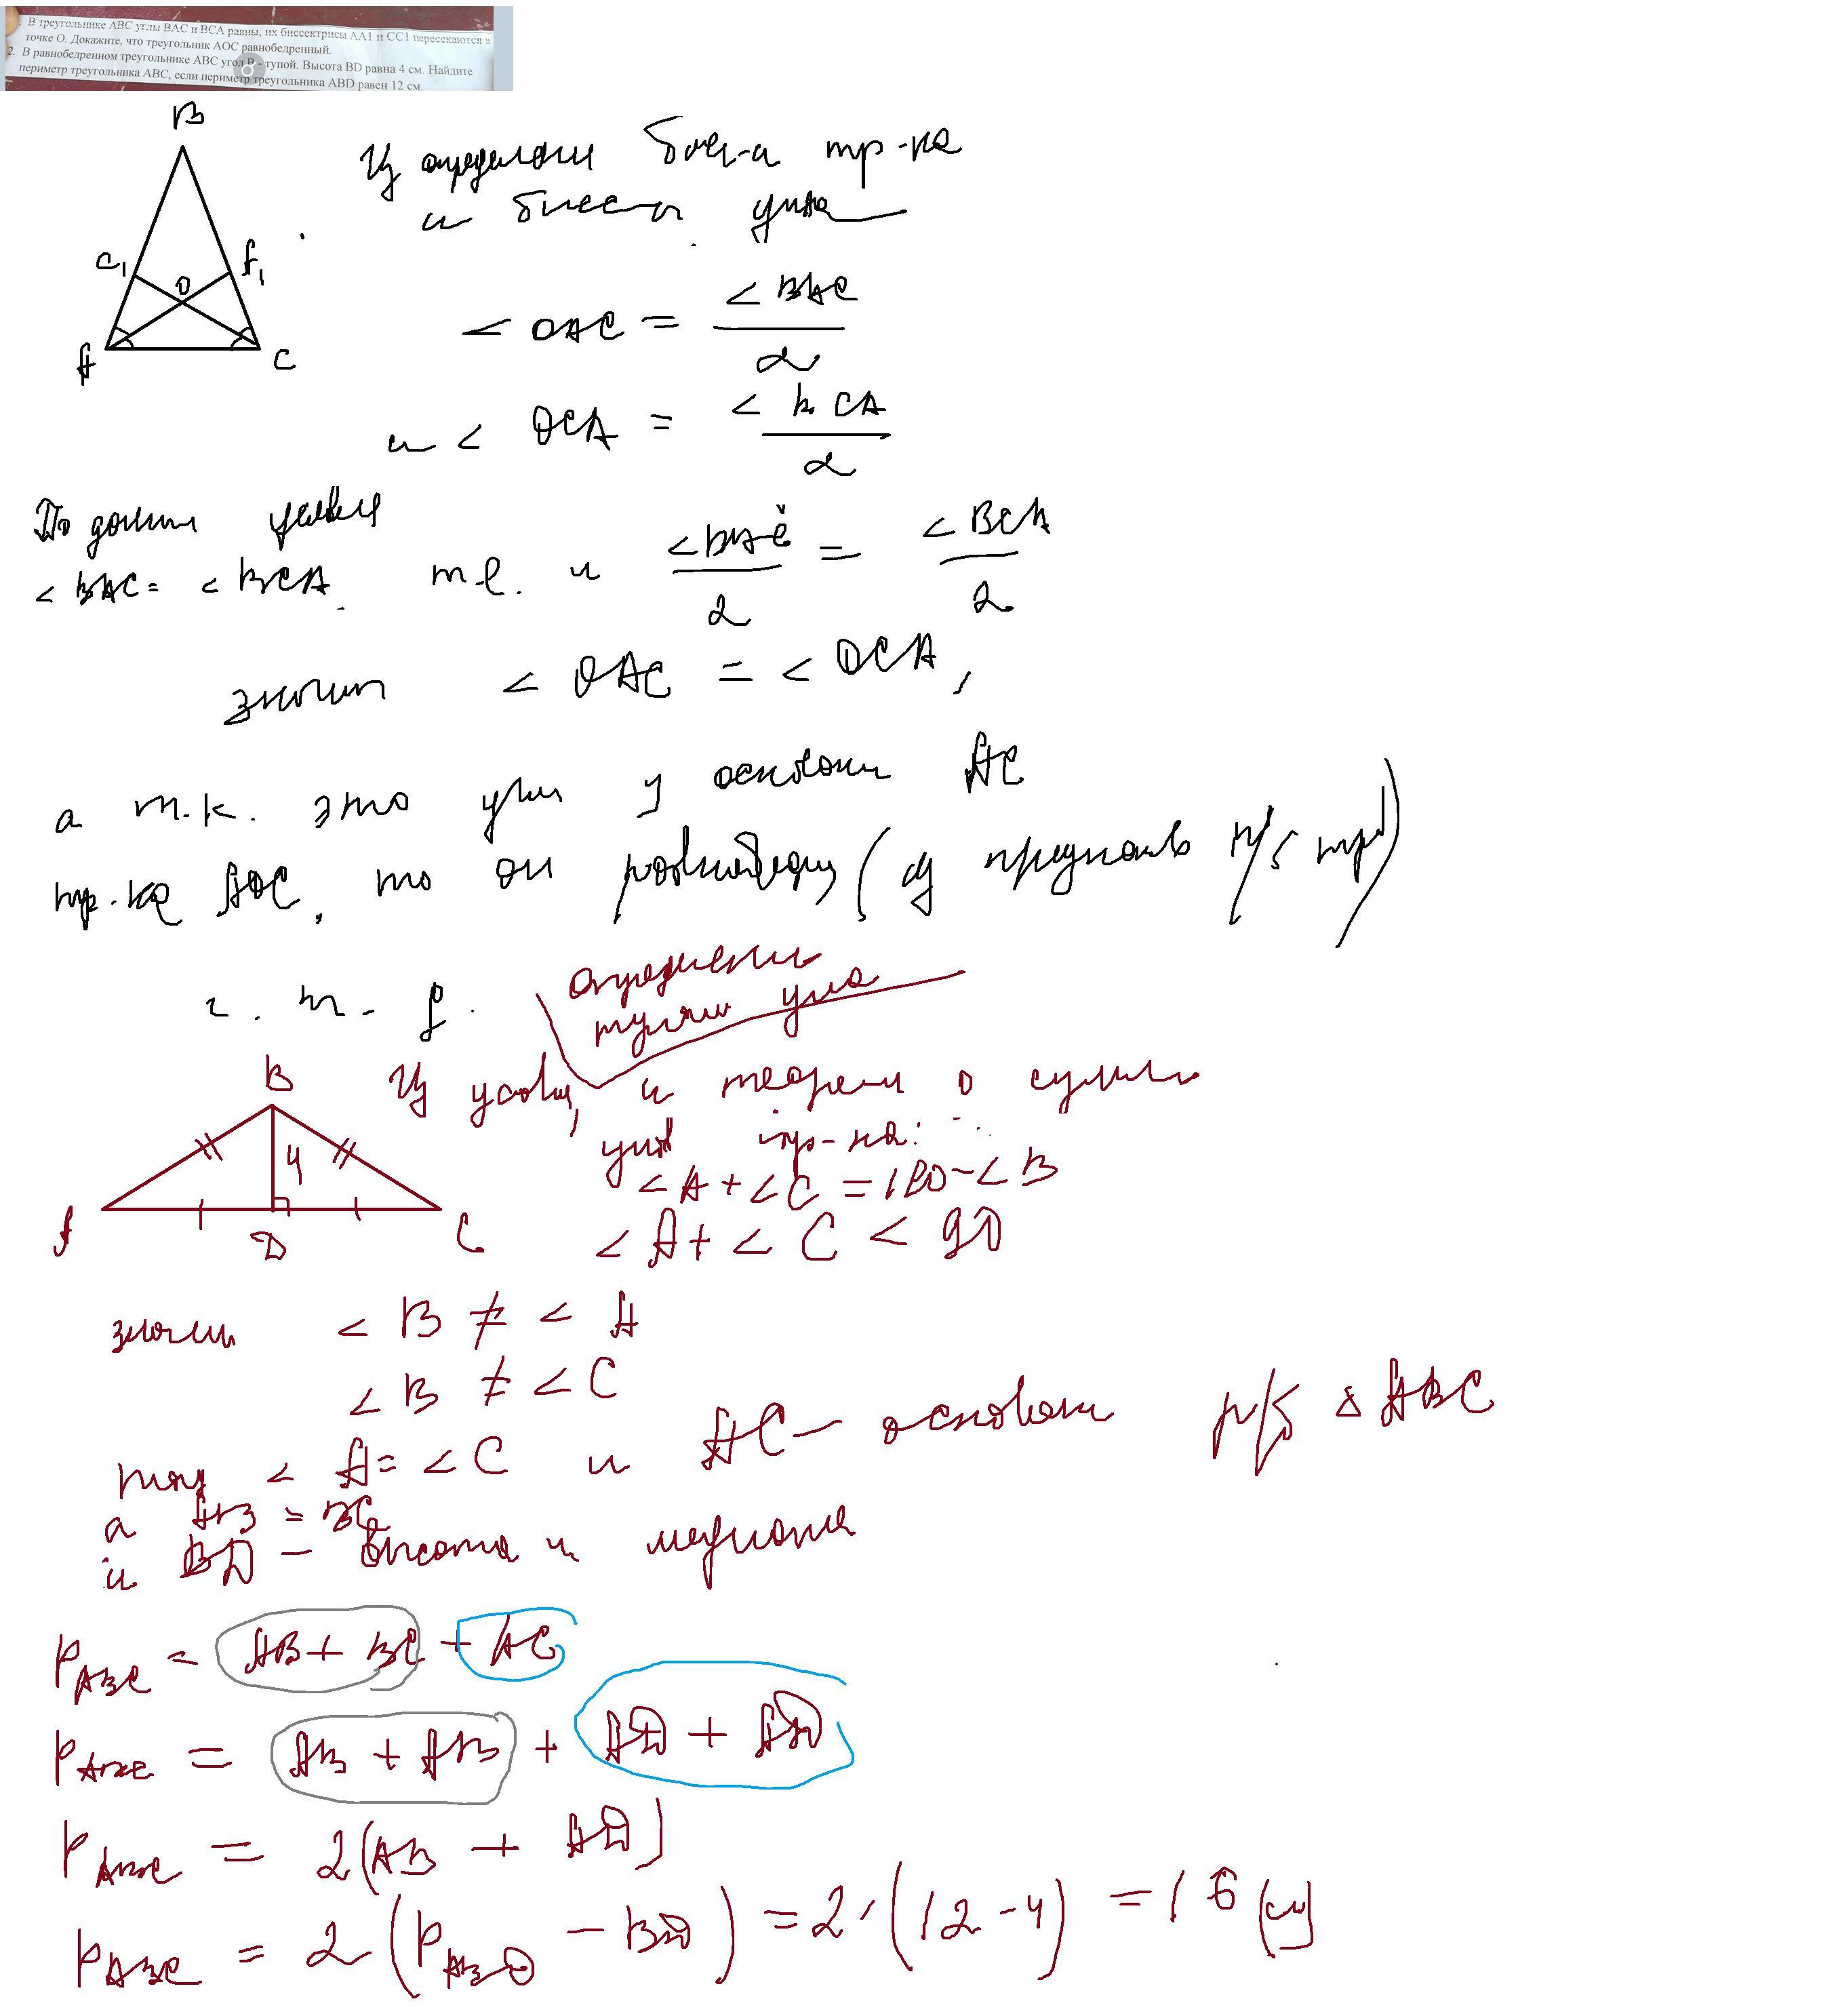 В треугольнике ABC углы BAC и BCA равны, их биссектрисы AA1 и CC1 пересекаются в
точке O. Докажите, что треугольник AOC равнобедренный.
2. В равнобедренном треугольнике ABC угол B - тупой. Высота BD равна 4 см. Найдите
периметр треугольника ABC, если периметр треугольника ABD равен 12 см.
B
C₁ O A₁
A C
Из тр-ка
и угла
< OAC = < BAC / 2
и < OCA = < BCA / 2
По
< BAC = < BCA. т.е. и < BAC / 2 = < BCA / 2
значит < OAC = < OCA,
а т.к. это углы у основани AC
тр-ка AOC, то он (из р/б тр)
ч. т. д.
тупого угла
B
4
A D C
Из и теорем о сумме
углов тр-ка:
< A + < C = 180 - < B
< A + < C < 90
значит < B ≠ < A
< B ≠ < C
тогда < A = < C и AC - основани р/б Δ ABC
а AB = BC
и BD - высота и медиана
P ABC = AB + BC + AC
P ABC = AB + AB + AD + AD
P ABC = 2(AB + AD)
P ABC = 2(P ABD - BD) = 2·(12-4) = 16 (см)